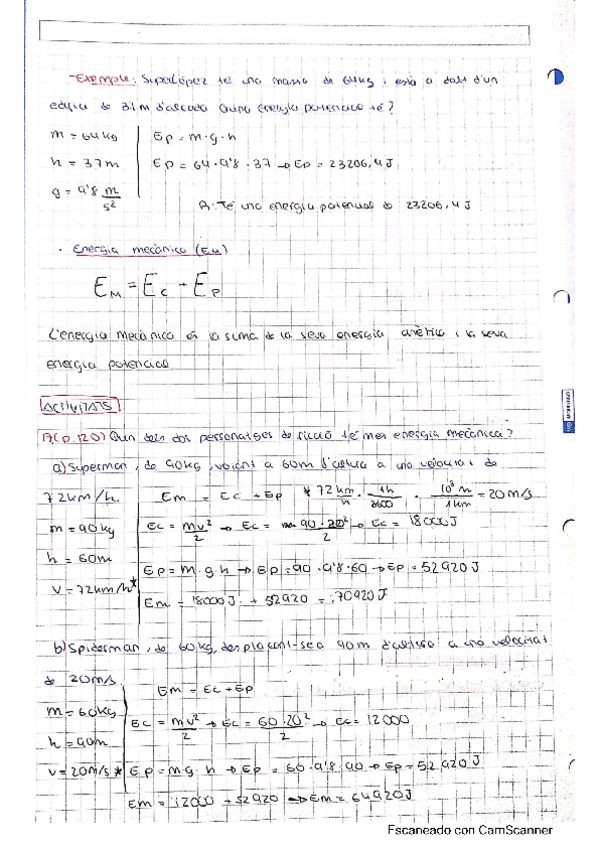 -Exemple: Superlópez té una massa de 64kg i està a dalt d'un
edifici de 37m d'alçada Quina energia potencial té?
m = 64kg   Ep = m·g·h
h = 37m   Ep = 64·9'8·37 → Ep = 23206,4J
g = 9'8 m/s²   R: Té una energia potencial de 23206,4J
· Energia mecànica (EM)
EM = EC + EP
L'energia mecànica és la suma de la seva energia cinètica i la seva
energia potencial
ACTIVITATS
17(p.120) Quin dels dos personatges de ficció té més energia mecànica?
a) Superman, de 90kg, volant a 60m d'altura a una velocitat de
72km/h   Em = Ec + Ep   * 72 km/h · 1h/3600 · 10³m/1km = 20m/s
m = 90kg   Ec = mv²/2 → Ec = 90·20²/2 → Ec = 18000J
h = 60m   Ep = m·g·h → Ep = 90·9'8·60 → Ep = 52920J
v = 72km/h*   Em = 18000J + 52920 = 70920J
b) Spiderman, de 60kg, desplaçant-se a 90m d'altura a una velocitat
de 20m/s   Em = Ec + Ep
m = 60kg   Ec = mv²/2 → Ec = 60·20²/2 → Ec = 12000
h = 90m
v = 20m/s*   Ep = mg·h → Ep = 60·9'8·90 → Ep = 52.920J
Em = 12000 + 52920 → Em = 64920J
Escaneado con CamScanner